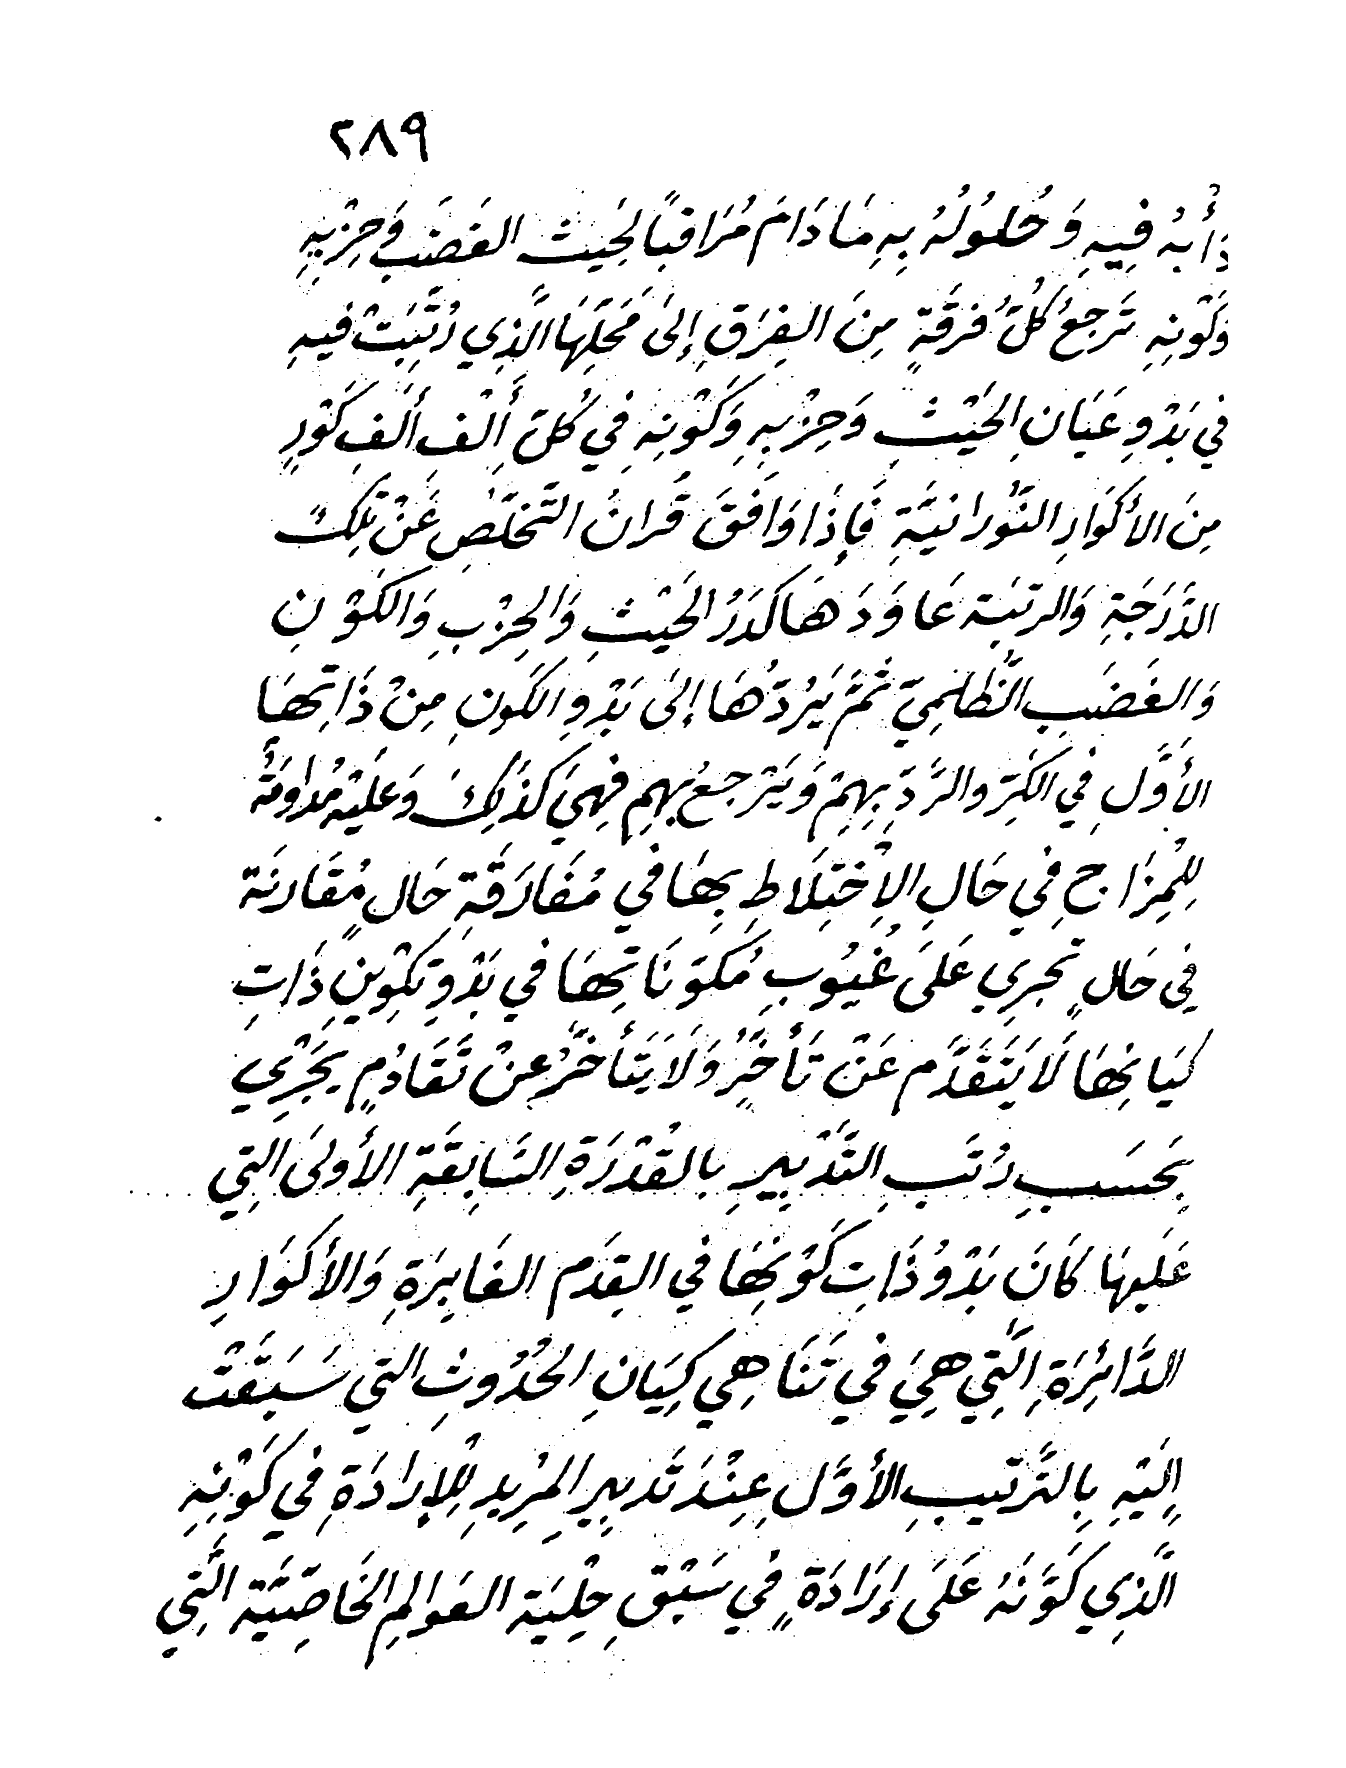 ٢٨٩
دَأْبُهُ فِيهِ وَحُلُولُهُ بِهِ مَا دَامَ مُرَاقِبًا لِحَيْثِ الغَضَبِ وَحِزْبِهِ
وَكَوْنِهِ تَرجعُ كُلُّ فُرقَةٍ مِنَ الفِرَقِ إِلىَ مَحَلِّهَا الَّذِي رُتِّبَتْ فيهِ
في بَدْوِ عَيَانِ الحَيْثِ وَحِزْبِهِ وَكَوْنِهِ فِي كُلّ أَلْفِ أَلفِ كَوْرٍ
مِنَ الأكوَارِ النُّورانيَّةِ فَإِذَا وَافَقَ قَرانُ التَّخلُّصِ عَنْ تِلكَ
الدَّرَجَةِ وَالرتبَة عَاوَدَهَا كَدَرُ الحَيْثِ وَالحِزْبِ وَالكَوْنِ
وَالغَضَبِ الظُّلمِيّ ثمَّ يَرُدُّهَا إلىَ بَدْوِ الكَونِ مِنْ ذَاتِهَا
الأَوَّلِ فِي الكَرّ والرَّدّ بِهِمْ وَيَترجعُ بهِم فِهيَ كذَلِكَ وَعَلَيْهِ مُداوَمَةُ
لِلْمِزَاجِ فِي حَالِ الاِخْتِلَاطِ بِهَا في مُفَارَقَةِ حَالِ مُقَارنَة
فِي حَالٍ تجرِي عَلىَ غُيُوبِ مُكوَنَاتِهَا في بَدْوِ تكْوِينِ ذَاتِ
كيَانِهَا لَا يَتَقَدَّم عَنْ تَأَخُّرٍ وَلَا يَتَأَخَّرُ عنْ تَقَادُمٍ يَجْرِي
بِحَسَبِ رُتَبِ التَّدْبِيرِ بِالقُدْرَةِ السَّابِقَةِ الأُولىَ التِي
عَلَيهَا كَانَ بَدْوُ ذَاتِ كَوْنِهَا في القِدَم الغَابِرَةِ وَالأَكوَارِ
الدَّائِرَةِ الَّتِي هِيَ في تَنَاهِي كِيَانِ الحُدُوثِ التي سَبَقَتْ
إِلَيْهِ بِالتَّرتيبِ الأَوَّلِ عِنْدَ تَدبِيرِ المرِيدِ لِلْإِرادَةِ فِي كَوْنِهِ
الَّذِي كَوَّنَهُ عَلىَ إِرَادَةٍ فِي سَبْقِ حِلْيَة العَوالِمِ الخَاصِّيَّة الَّتِي